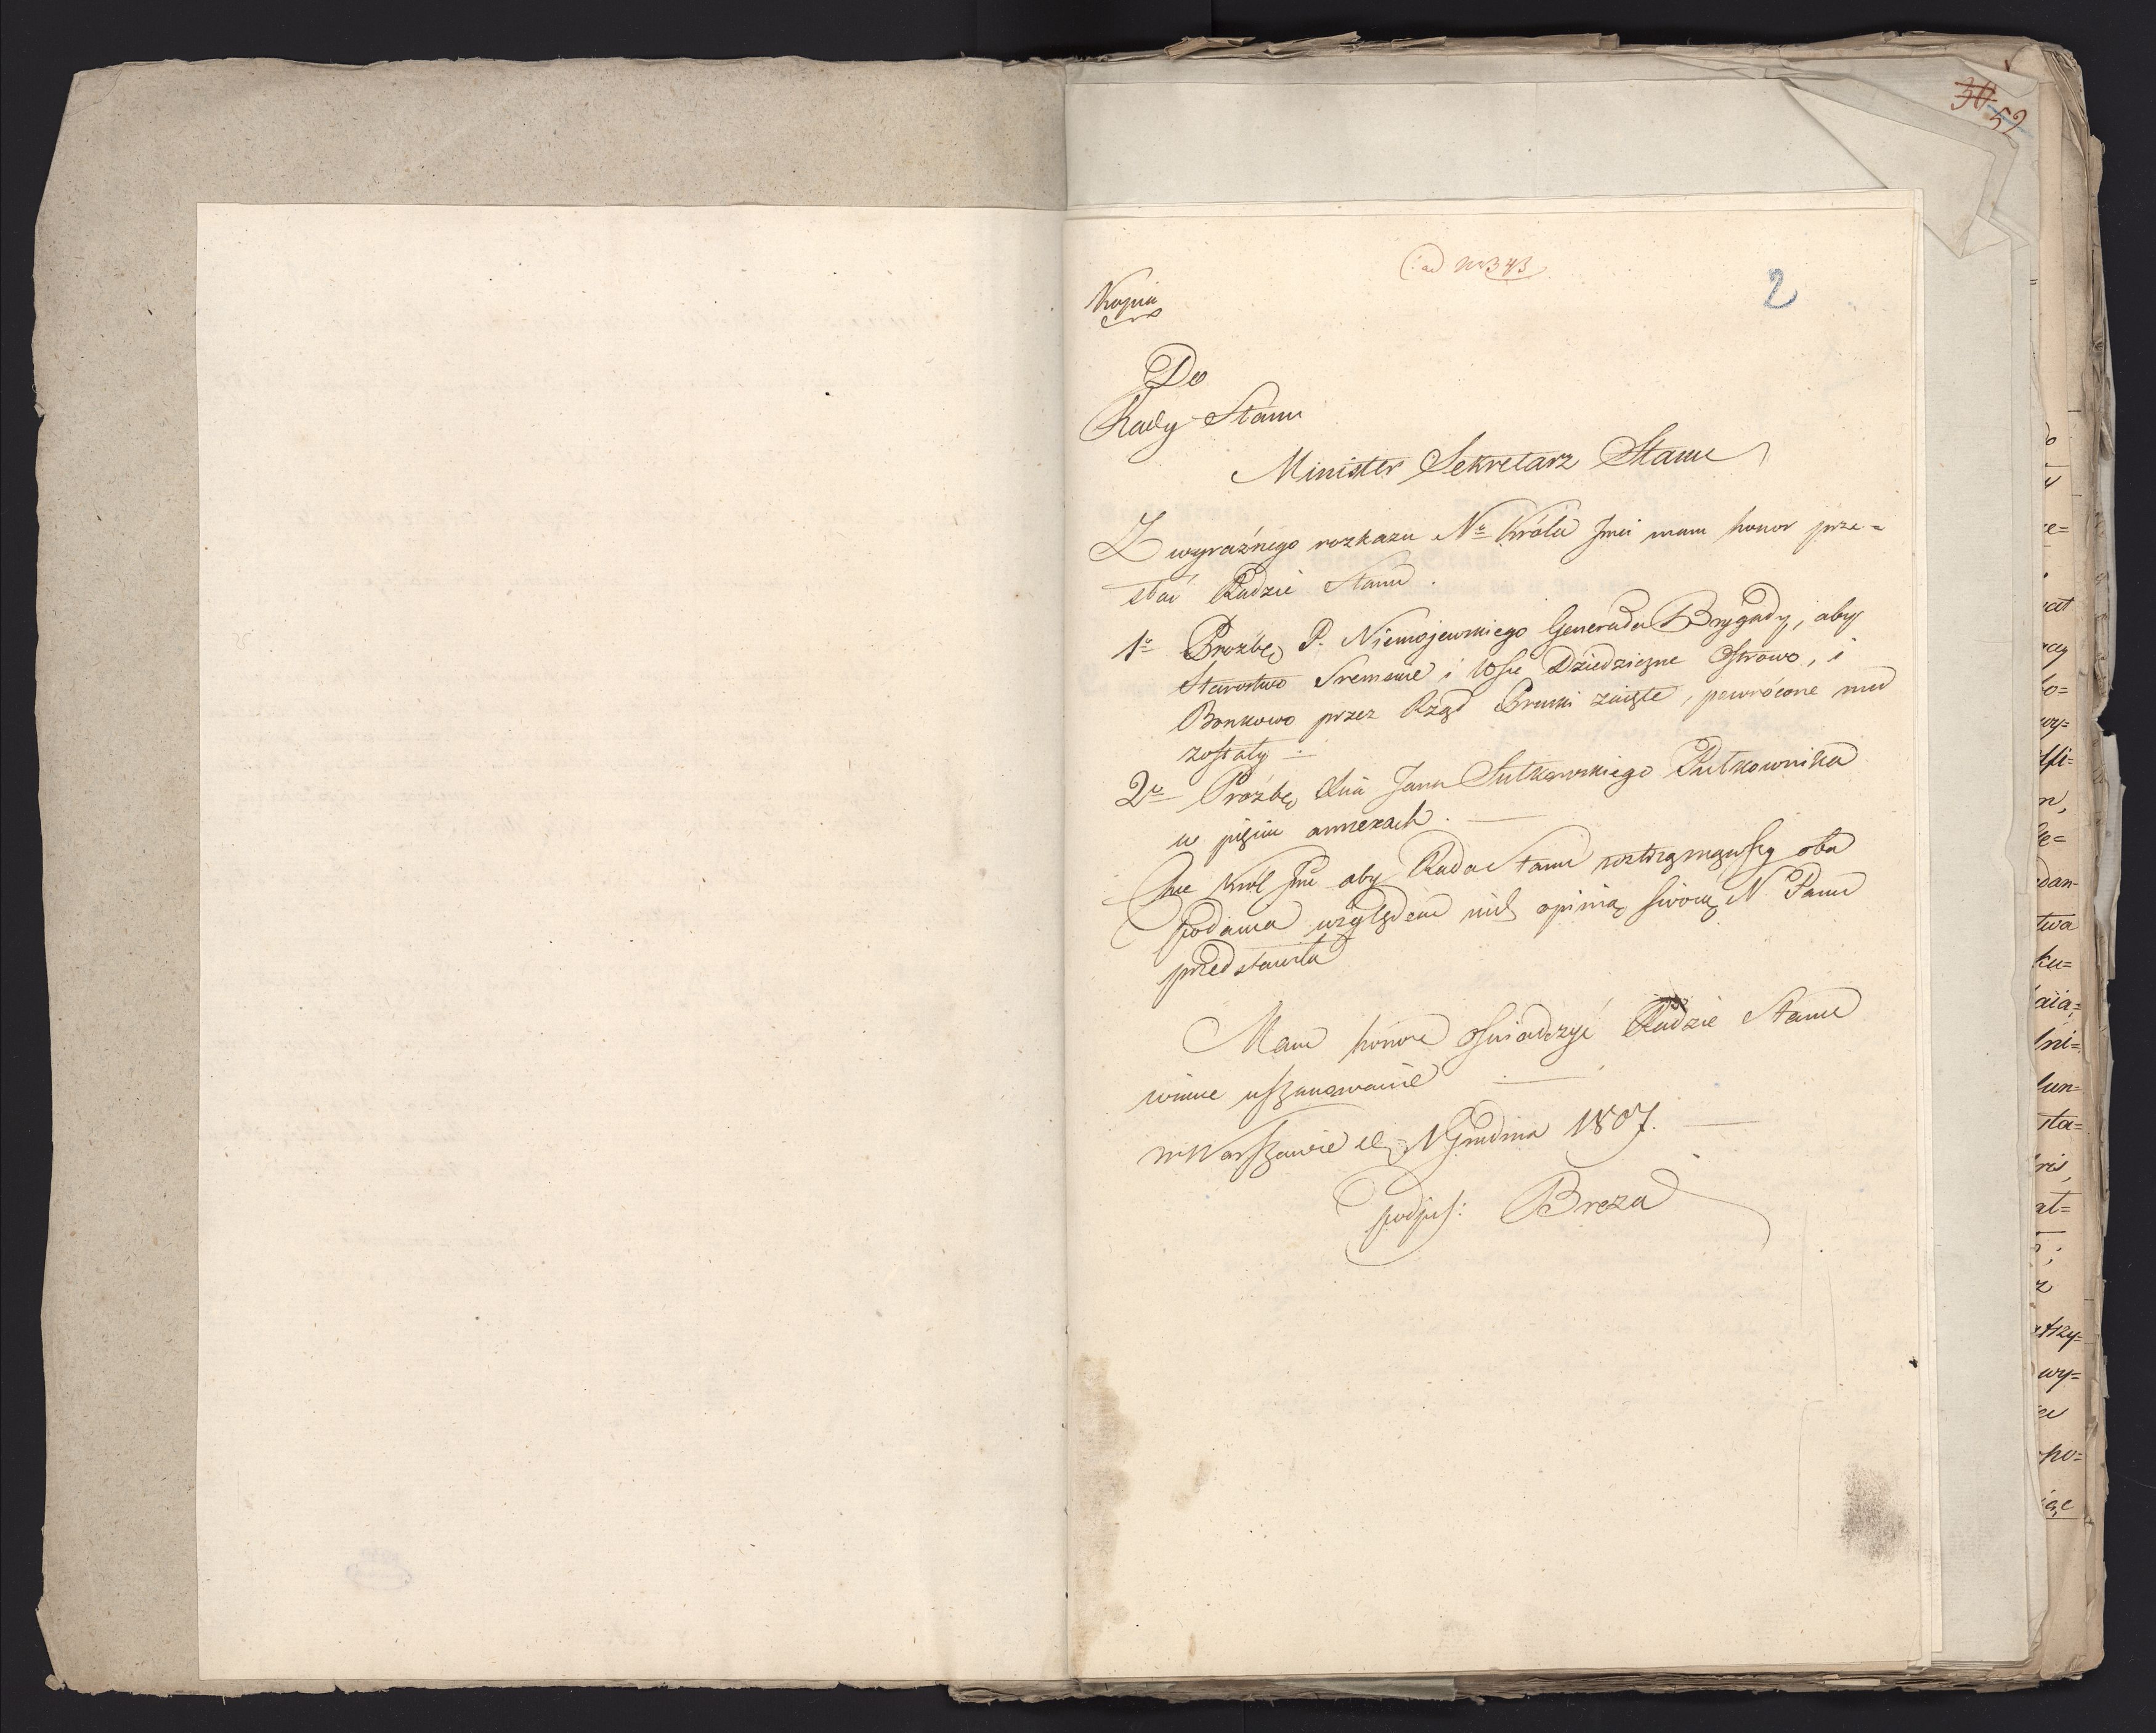 30 52
(: ad Nr 343
2
Kopia
Do
Rady Stanu
Minister Sekretarz Stanu
Z wyraźnego rozkazu No Króla Jmci mam honor prze=
słać Radzie Stanu.
1o Prozbę P. Niemojewskiego Generała Brygady, aby
Starostwo Sremskie i Wsie Dziedziczne Ostrowo, i
Bonkowo przez Rząd Pruski zaięte, powrócone mu
zostały
2o Prozbę Xcia Jana Sułkowskiego Pułkownika
w pięciu annexach.
Chce Król Jmć aby Rada Stanu roztrząsnąwszy oba
podania względem nich opinią swoią N. Panu
przedstawiła
Mam honor oświadczyć Radzie Stanu
winne uszanowanie
w Warszawie d. 1 Grudnia 1807.
podpis: Breza